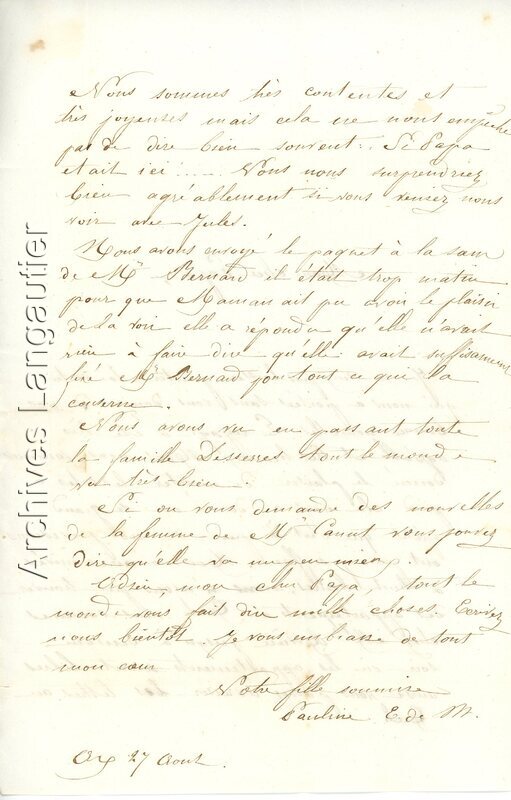 Nous sommes très contentes et
très joyeuses mais cela ne nous empêche
pas de dire bien souvent : Si Papa
etait ici ..... Vous nous surprendriez
bien agréablement si vous veniez nous
voir avec Jules.
Nous avons envoyé le paquet à la sœur
de Mr Bernard il était trop matin
pour que Maman ait pu avoir le plaisir
de la voir elle a répondu qu'elle n'avait
rien à faire dire qu'elle avait suffisament
Mr Bernard pour tout ce que la
concerne.
Nous avons vu en passant toute
la famille Desserres tout le monde
va très-bien.
Si on vous demande des nouvelles
de la femme de Mr Canut vous pouvez
dire qu'elle va un peu mieux.
Adieu, mon cher Papa, tout le
monde vous fait dire mille choses. Ecrivez
nous bientôt. Je vous embrasse de tout
mon cœur
Votre fille soumise
Pauline E. de M.
27 Aout.
Archives Langautier